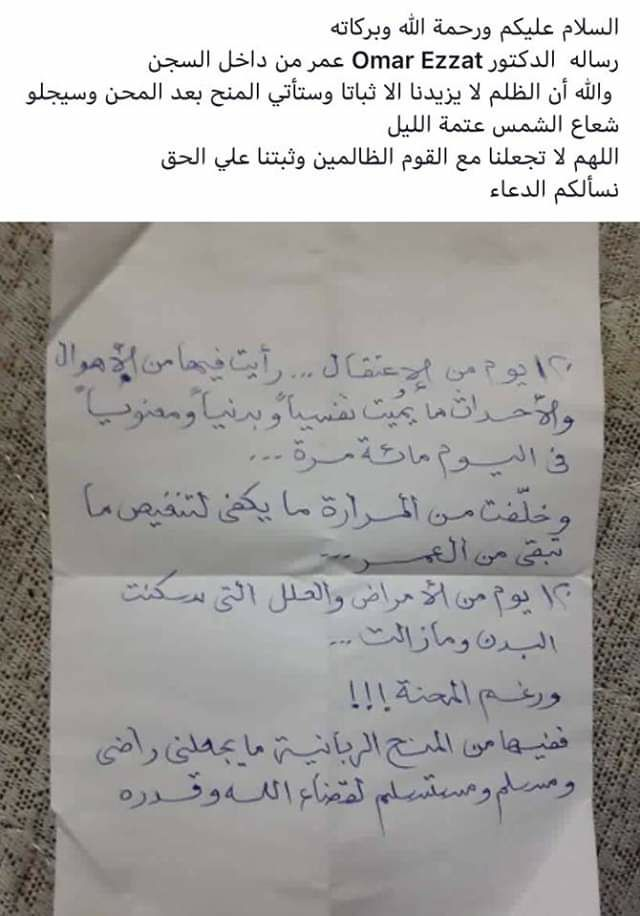 السلام عليكم ورحمة الله وبركاته
رساله الدكتور Omar Ezzat عمر من داخل السجن
والله أن الظلم لا يزيدنا الا ثباتا وستأتي المنح بعد المحن وسيجلو
شعاع الشمس عتمة الليل
اللهم لا تجعلنا مع القوم الظالمين وثبتنا علي الحق
نسألكم الدعاء
١٢٠ يوم من الإعتقال ... رأيت فيها من الأهوال
والأحداث ما يُميت نفسياً وبدنياً ومعنوياً
فى اليوم مائة مرة ...
وخلّفت من المرارة ما يكفى لتنغيص ما
تبقى من العمر ...
١٢٠ يوم من الأمراض والعلل التى سكنت
البدن ومازالت ...
ورغم المحنة !!!
ففيها من المنح الربانية ما يجعلنى راضى
ومسلم ومستسلم لقضاء الله وقدره